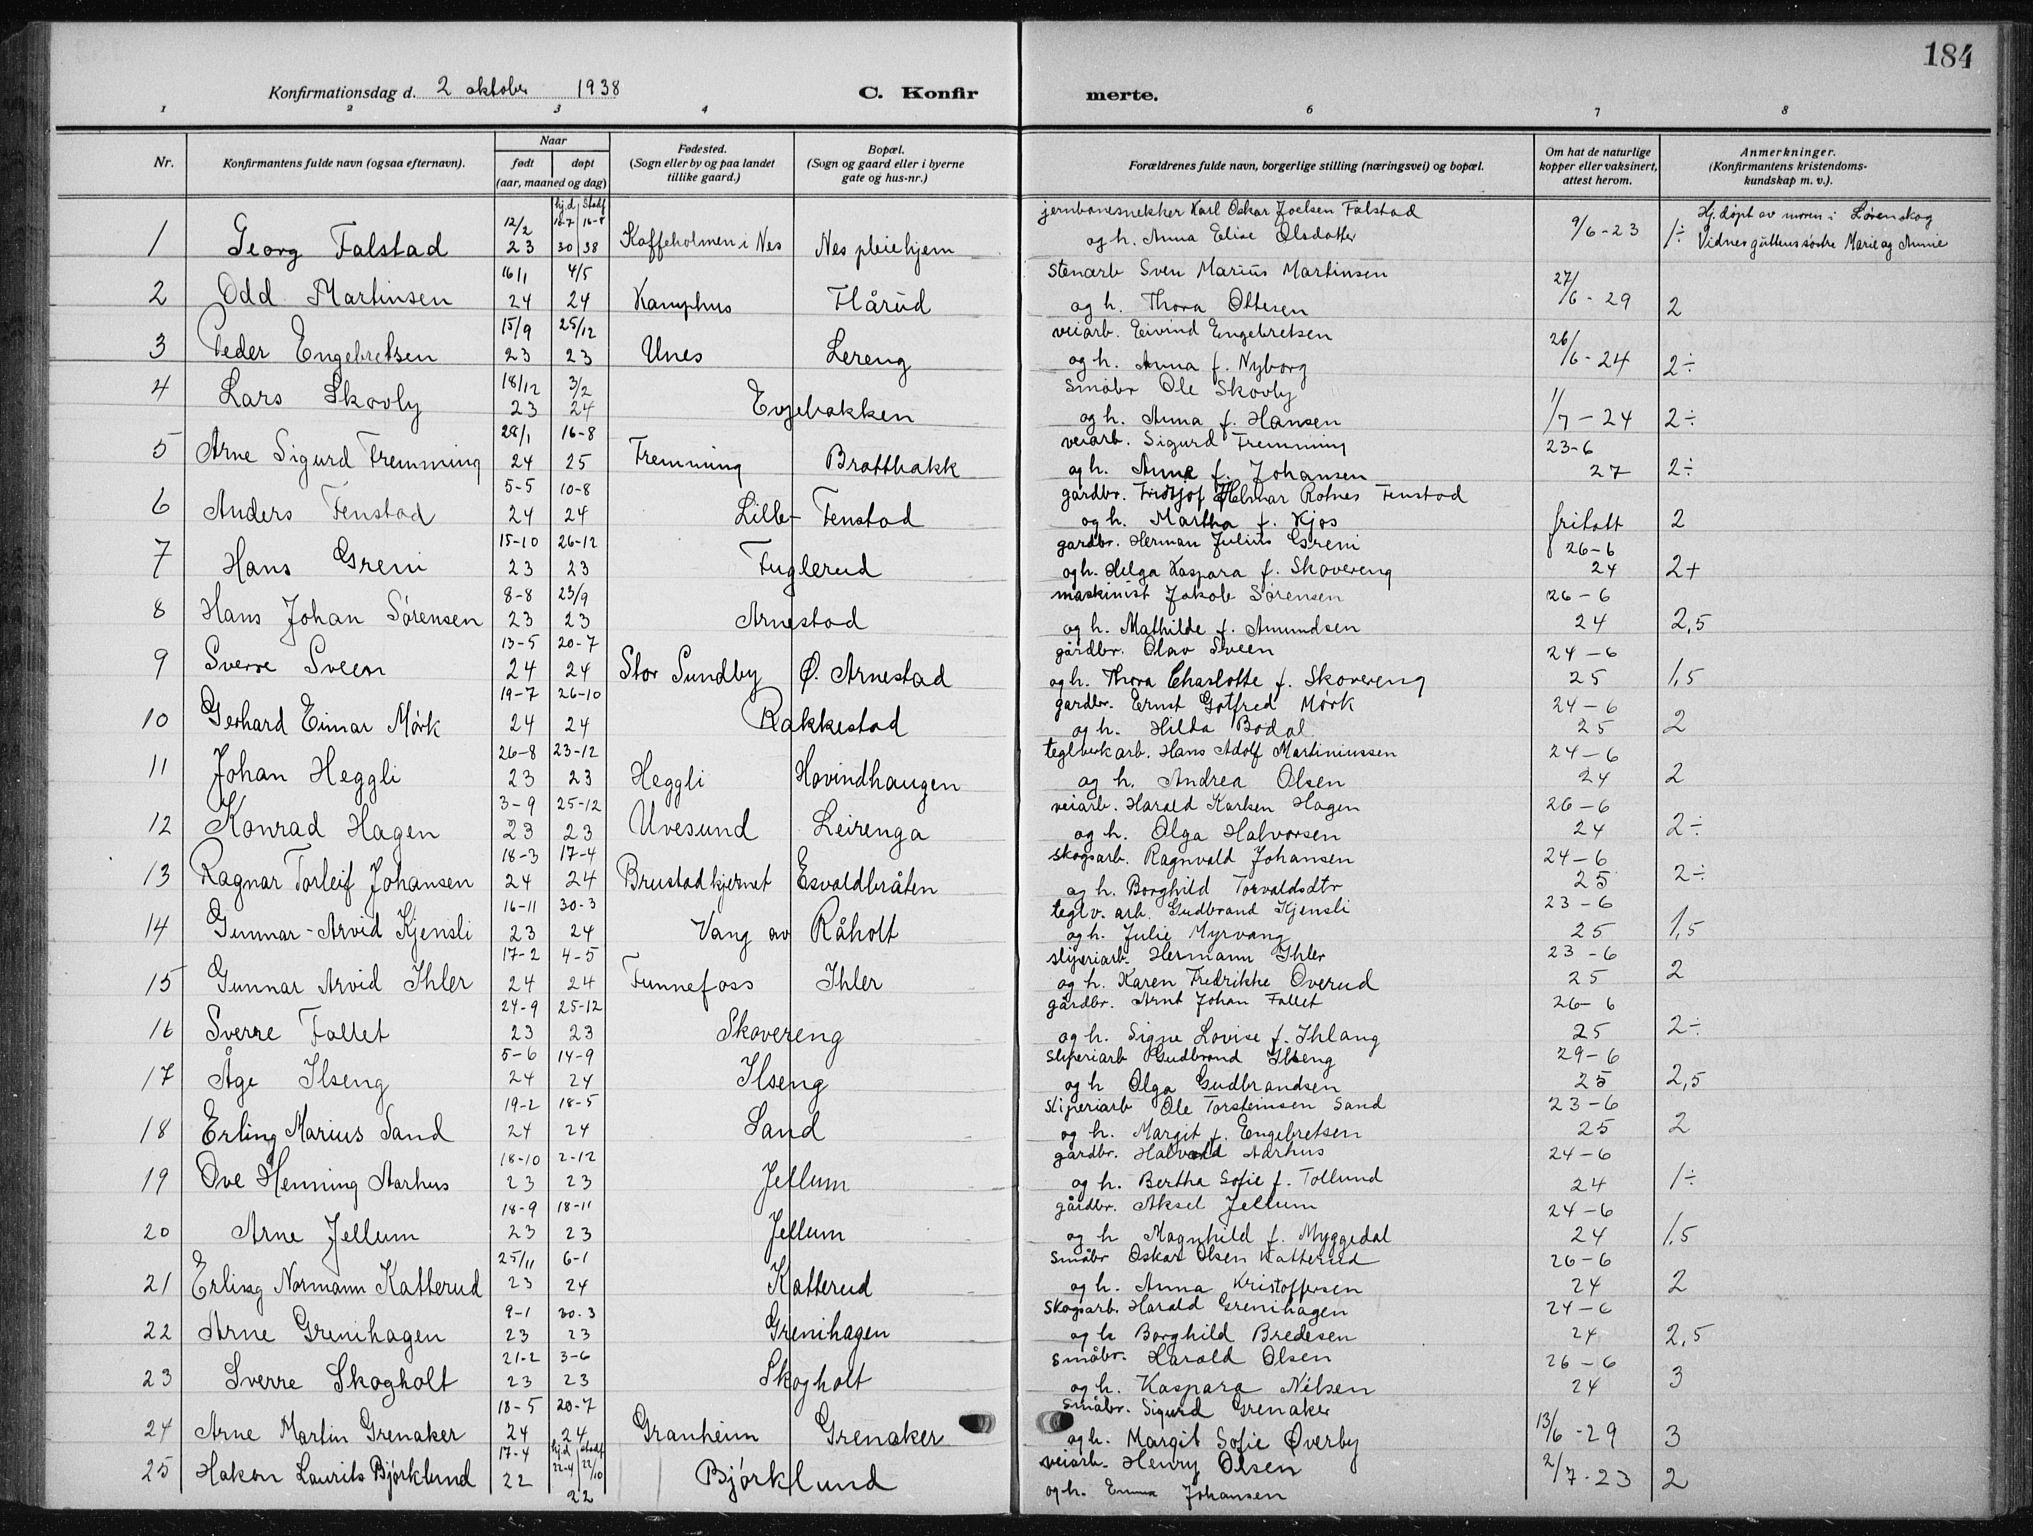 184
Konfirmationsdag d. 2 oktober 1938 C. Konfirmerte.
1 2 3 4 6 7 8
Nr. Konfirmantens fulde navn (ogsaa efternavn). Naar født døpt (aar, maaned og dag) Fødested. (Sogn eller by og paa landet tillike gaard.) Bopæl. (Sogn og gaard eller i byerne gate og hus-nr.) Forældrenes fulde navn, borgerlige stilling (næringsvei) og bopæl. Om hat de naturlige kopper eller vaksinert, attest herom. Anmerkninger. (Konfirmantens kristendoms-kundskap m. v.).
12/2 hj.d 16-7 Stadf 16-8 jernbanesnekker Karl Oskar Joelsen Falstad Hj. døpt av moren i Lørenskog
1 Georg Falstad 23 30 38 Kaffeholmen i Nes Nes pleiehjem og h. Anna Elise Olsdatter 9/6-23 1÷ Vidner guttens søstre Marie og Annie
16/1 4/5 stenarb Sven Marius Martinsen 27/6-29
2 Odd Martinsen 24 24 Kamphus Hårud og h. Thora Ottesen 2
15/9 25/12 veiarb. Eivind Engebretsen
3 Peder Engebretsen 23 23 Unes Lereng og h. Anna f. Nyborg 26/6-24 2÷
18/12 3/2 småbr Ole Skovly
4 Lars Skovly 23 24 Evjebakken og h. Anna f. Hansen 1/7-24 2÷
28/1 16-8 veiarb. Sigurd Fremming 23-6
5 Arne Sigurd Fremming 24 25 Fremming Brattbakk og h. Anna f. Johansen 27 2÷
5-5 10-8 gardbr. Fridtjof Helmar Rotnes Fenstad
6 Anders Fenstad 24 24 Lille-Fenstad og h. Martha f. Kjos fritatt 2
15-10 26-12 gardbr. Herman Julius Greni 26-6
7 Hans Greni 23 23 Fuglerud og h. Helga Kaspara f. Skovereng 24 2+
8-8 23/9 maskinist Jakob Sørensen 26-6
8 Hans Johan Sørensen 23 23 Arnestad og h. Mathilde f. Amundsen 24 2,5
13-5 20-7 gårdbr. Olav Sveen 24-6
9 Sverre Sveen 24 24 Stor Sundby Ø. Arnestad og h. Thora Charlotte f. Skovereng 25 1,5
19-7 26-10 gardbr. Ernst Gotfred Mørk 24-6
10 Gerhard Einar Mørk 24 24 Rakkestad og h. Hilda Bodal 25 2
26-8 23-12 teglverkarb. Hans Adolf Martiniussen 24-6
11 Johan Heggli 23 23 Heggli Hovindhaugen og h. Andrea Olsen 24 2
3-9 25-12 veiarb. Harald Karlsen Hagen 26-6
12 Konrad Hagen 23 23 Uvesund Leirenga og h. Olga Halvorsen 24 2÷
18-3 17-4 skogsarb. Ragnvald Johansen 24-6
13 Ragnar Torleif Johansen 24 24 Brustadkjernet Esvaldbråten og h. Borghild Torvaldsdtr 25 2÷
16-11 30-3 teglv. arb. Gudbrand Kjensli 23-6
14 Gunnar-Arvid Kjensli 23 24 Vang av Råholt og h. Julie Myrvang 25 1,5
17-2 4-5 sliperiarb. Hermann Ihler 23-6
15 Gunnar Arvid Ihler 24 24 Funnefoss Ihler og h. Karen Fredrikke Overud 25 2
24-9 25-12 gårdbr. Arnt Johan Fallet 26-6
16 Sverre Fallet 23 23 Skovereng og h. Signe Lovise f. Ihlang 25 2÷
5-6 14-9 sliperiarb Gudbrand Ilseng 29-6
17 Åge Ilseng 24 24 Ilseng og h Olga Gudbrandsen 25 2,5
19-2 18-5 sliperiarb Ole Torsteinsen Sand 23-6
18 Erling Marius Sand 24 24 Sand og h. Margit f. Engebretsen 25 2
18-10 2-12 gårdbr. Halvard Aarhus 24-6
19 Ove Henning Aarhus 23 23 Jellum og h. Bertha Sofie f. Tollund 24 1÷
18-9 18-11 gårdbr. Aksel Jellum 24-6
20 Arne Jellum 23 23 Jellum og h Magnhild f. Myggedal 24 1,5
25/11 6-1 småbr Oskar Olsen Katterud 26-6
21 Erling Normann Katterud 23 24 Katterud og h. Anna Kristoffersen 24 2
9-1 30-3 skogsarb. Harald Grenihagen 24-6
22 Arne Grenihagen 23 23 Grenihagen og h Borghild Bredesen 24 2,5
21-2 3-6 småbr. Harald Olsen 26-6
23 Sverre Skogholt 23 23 Skogholt og h. Kaspara Nilsen 24 3
18-5 20-7 småbr. Sigurd Grenaker
24 Arne Martin Grenaker 24 24 Granheim Grenaker og h. Margit Sofie Øverby 13/6-29 3
17-4 hj.d 22-4 stadf 22/10 veiarb. Henry Olsen
25 Hakon Laurits Bjørklund 22 22 Bjørklund og h. Emma Johansen 2/7-23 2